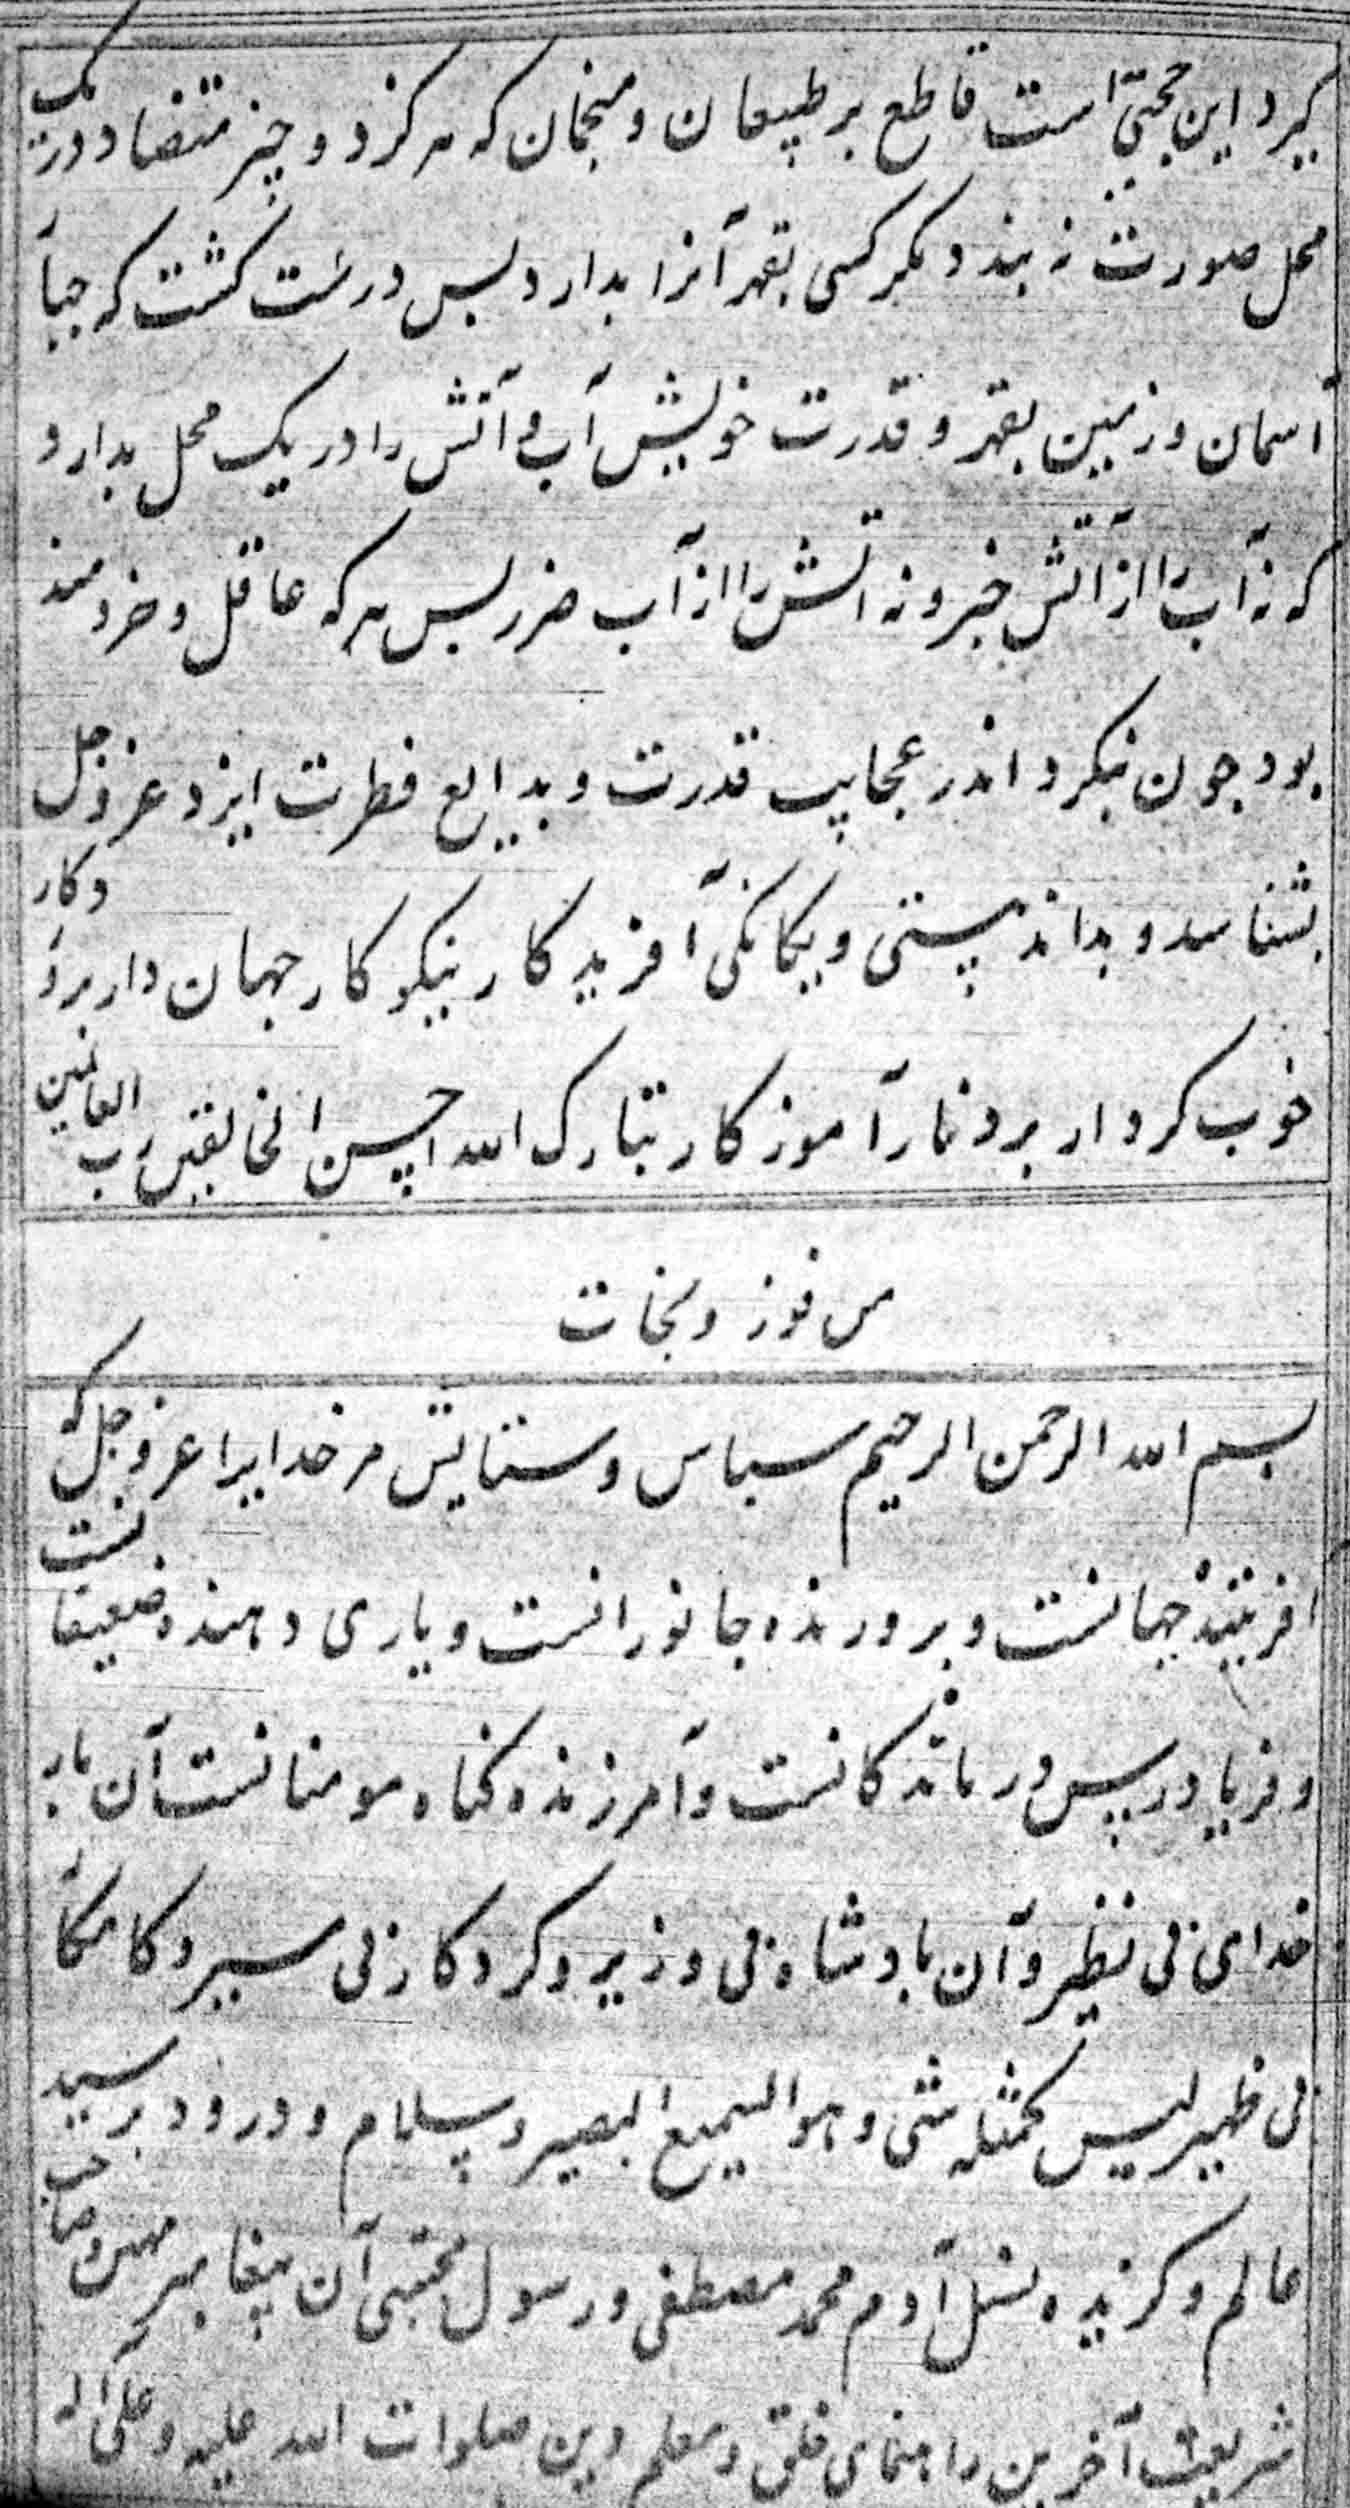 گیرد این حجتی است قاطع بر طبیعان و منجمان که هرگز دو چیز متضاد در یک
محل صورت نه بندد مگر کسی بقهر آنرا بدارد پس درست گشت که جبار
آسمان و زمین بقهر و قدرت خویش آب و آتش را در یک محل بدارد
که نه آب را از آتش خبر و نه آتش را از آب ضرر پس هر که عاقل و خردمند
بود چون نگرد اندر عجایب قدرت و بدایع فطرت ایزد عز و جل
بشناسد و بداند هستی و یگانگی آفریدگار نیکوکار جهان دار بردبار و کار
خوب کردار آموزگار تبارک الله احسن الخالقین رب العالمین
من فوز و نجات
بسم الله الرحمن الرحیم سباس و ستایش مر خدایرا عز و جل که
آفریننده جهانست و برورنده جانورانست و یاری دهنده ضعیفانست
و فریادرس درماندگانست و آمرزنده گناه مومنانست آن بار
خدای بی نظیر و آن بادشاه بی وزیر و کردکار بی مسیر و کامکار
بی ظهیر لیس کمثله شی و هو السمیع البصیر و سلام و درود بر سید
عالم و گزیده نسل آدم محمد مصطفی و رسول مجتبی آن پیغامبر مهین و صاحب
شریعت آخرین راهنمای خلق و معلم دین صلوات الله علیه و علی اله